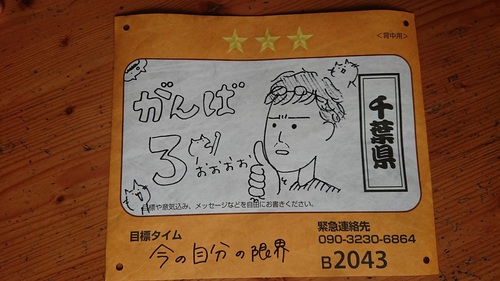 <背中用>
がんば
3ぞ
おぉぉぉ
千葉県
目標や意気込み、メッセージなどを自由にお書きください。
目標タイム
今の自分の限界
緊急連絡先
090-3230-6864
B2043